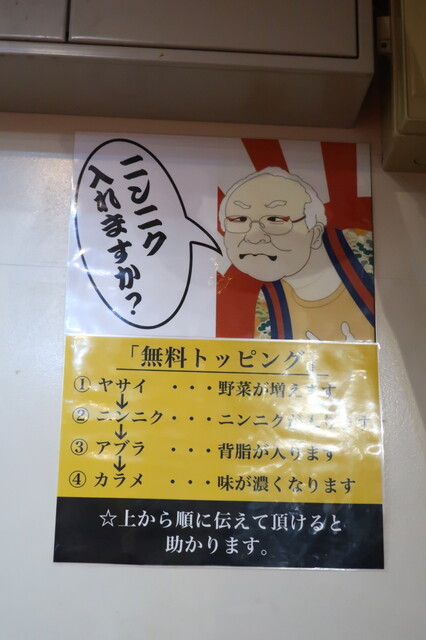 ニンニク
入れますか?
「無料トッピング」
① ヤサイ ・・・野菜が増えます
② ニンニク・・・ニンニク
③ アブラ ・・・背脂が入ります
④ カラメ ・・・味が濃くなります
☆上から順に伝えて頂けると
助かります。